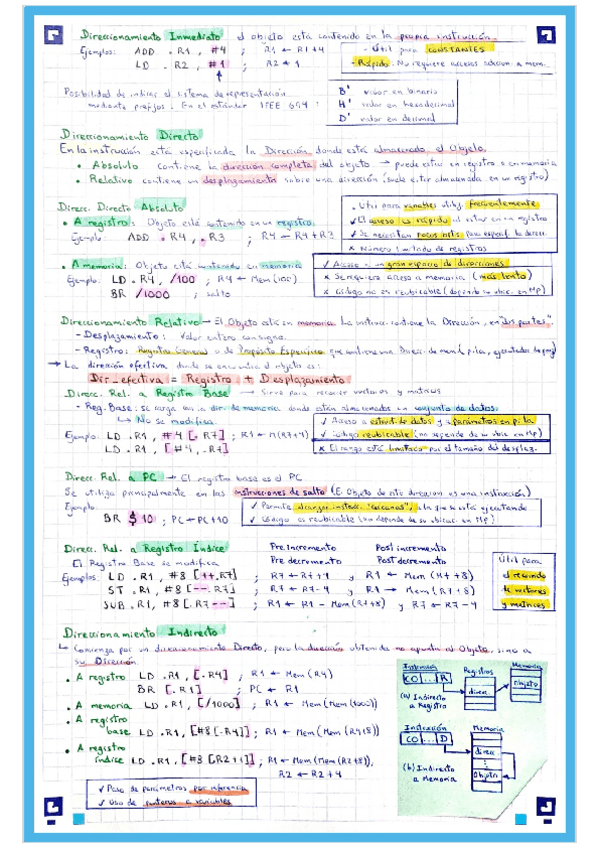 Direccionamiento Inmediato el objeto está contenido en la propia instrucción.
Ejemplos: ADD .R1, #4 ; R1 ← R1+4
LD .R2, #1 ; R2 ← 1
- Útil para CONSTANTES
- Rápido: No requiere accesos adicion. a mem.
Posibilidad de indicar el sistema de representación
mediante prefijos. En el estándar IEEE 694:
B' valor en binario
H' valor en hexadecimal
D' valor en decimal
Direccionamiento Directo
En la instrucción está especificada la Dirección donde está almacenado el Objeto.
• Absoluto contiene la dirección completa del objeto → puede estar en registro o en memoria
• Relativo contiene un desplazamiento sobre una dirección (suele estar almacenada en un registro)
Direcc. Directo Absoluto
• A registro: Objeto está contenido en un registro.
Ejemplo: ADD .R4, .R3 ; R4 ← R4+R3
- Útil para variables utiliz. frecuentemente
✓ El acceso es rápido al estar en un registro
✓ Se necesitan pocos bits para especif. la direcc.
x Número limitado de registros
• A memoria: Objeto está contenido en memoria
Ejemplo: LD .R4, /100 ; R4 ← Mem(100)
BR /1000 ; salto
✓ Acceso a un gran espacio de direcciones
x Se requiere acceso a memoria (más lento)
x Código no es reubicable (depende de su ubic. en MP)
Direccionamiento Relativo → El Objeto está en memoria. La instrucc. contiene la Dirección, en "dos partes".
- Desplazamiento: Valor entero con signo.
- Registro: Registro General o de Propósito Específico que contiene una Direcc. de mem.
→ La dirección efectiva donde se encuentra el objeto es:
Dir_efectiva = Registro + Desplazamiento
Direcc. Rel. a Registro Base → Sirve para recorrer vectores y matrices
- Reg. Base: se carga con la dir. de memoria donde están almacenados un conjunto de datos.
↳ No se modifica.
Ejemplo: LD .R1, #4 [.R7] ; R1 ← M(R7+4)
LD .R1, [#4, .R7]
✓ Acceso a estruct. de datos y a parámetros en pila
✓ Código reubicable (no depende de su ubic. en MP)
x El rango está limitado por el tamaño del desplaz.
Direcc. Rel. a PC → El registro base es el PC
Se utiliza principalmente en las instrucciones de salto (El Objeto de este direccion. es una instrucción)
Ejemplo:
BR $10 ; PC ← PC+10
✓ Permite alcanzar instrucc. "cercanas" a la que se está ejecutando
✓ Código es reubicable (no depende de su ubicac. en MP)
Direcc. Rel. a Registro Índice
El Registro Base se modifica
Pre incremento Post incremento
Pre decremento Post decremento
Ejemplos: LD .R1, #8 [++.R7] ; R7 ← R7+4 y R1 ← Mem(R7+8)
ST .R1, #8 [--.R7] ; R7 ← R7-4 y R1 → Mem(R7+8)
SUB .R1, #8 [.R7--] ; R1 ← R1 - Mem(R7+8) y R7 ← R7-4
Útil para
el recorrido
de vectores
y matrices
Direccionamiento Indirecto
↳ Comienza por un direccionamiento Directo, pero la dirección obtenida no apunta al Objeto, sino a
su Dirección
• A registro LD .R1, [.R4] ; R1 ← Mem(R4)
BR [.R1] ; PC ← R1
• A memoria LD .R1, [/1000] ; R1 ← Mem(Mem(1000))
• A registro
base LD .R1, [#8[.R4]] ; R1 ← Mem(Mem(R4+8))
• A registro
índice LD .R1, [#3 [R2++]] ; R1 ← Mem(Mem(R2+8)),
R2 ← R2+4
✓ Paso de parámetros por referencia
✓ Uso de punteros a variables
Instrucción Registros Memoria
CO ... R
direcc
Objeto
(a) Indirecto
a Registro
Instrucción Memoria
CO ... D
direcc
Objeto
(b) Indirecto
a Memoria